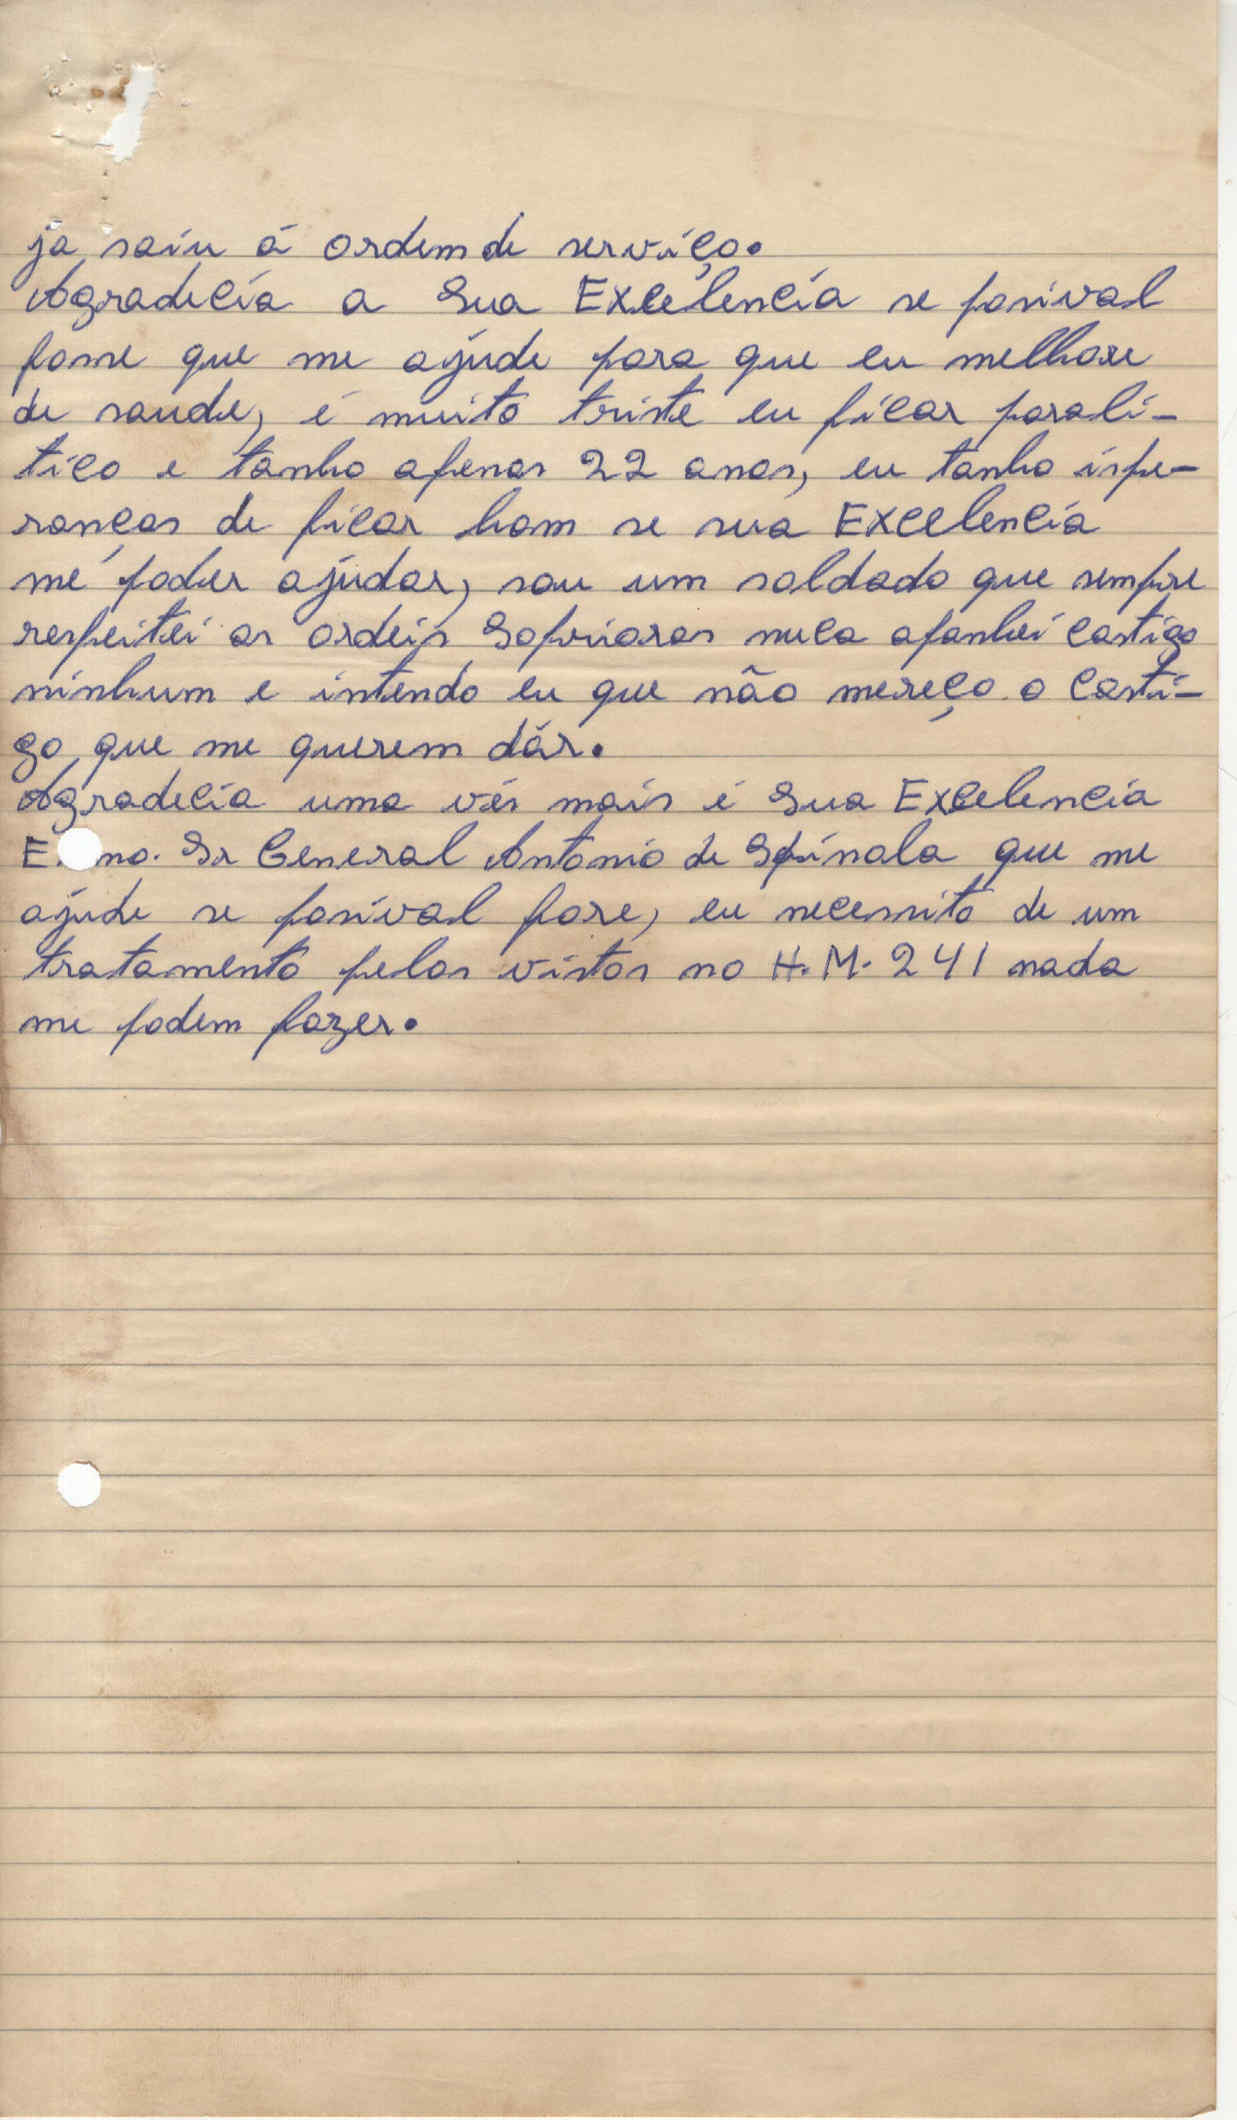 ja saiu á ordem de serviço.
Agradecia a Sua Excelencia se posival
fosse que me ajude para que eu melhore
de saude, é muito triste eu ficar parali-
tico e tanho apenas 22 anos, eu tanho ispe-
ranças de ficar bom se sua Excelencia
me poder ajudar, sou um soldado que sempre
respeitei as ordeis Sopriores nuca apanhei castigo
ninhum e intendo eu que não mereço o Casti-
go que me querem dár.
Agradecia uma vés mais é Sua Excelencia
E mo. Sr General Antonio de Spínola que me
ajude se posival fore, eu necessito de um
tratamento pelos vistos no H.M. 241 nada
me podem fazer.